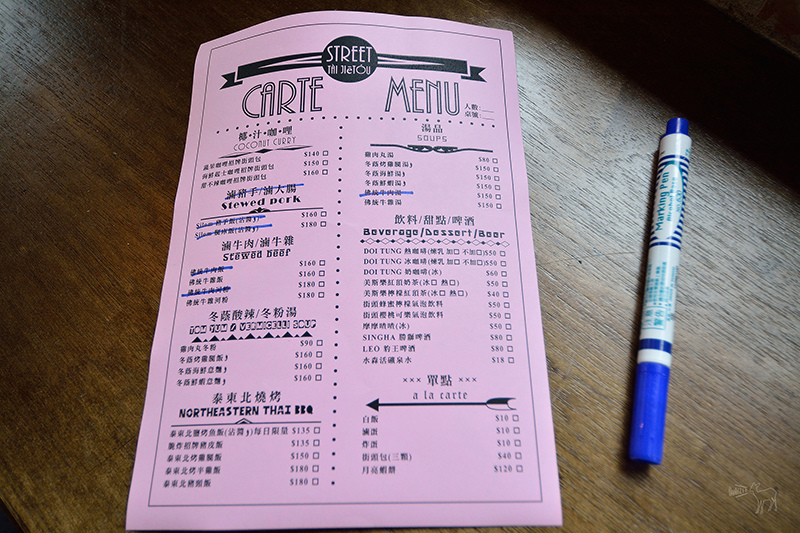 STREET
TÁI JIēTÓU
CARTE MENU
人數:
桌號:
椰•汁•咖•哩
COCONUT CURRY
蔬菜咖哩招牌街頭包 $140 □
海鮮起士咖哩招牌街頭包 $150 □
甜不辣咖哩招牌街頭包 $160 □
滷豬手/滷大腸
Stewed pork
Silom 豬手飯(沾醬) $160 □
Silom 腿庫飯(沾醬) $180 □
滷牛肉/滷牛雜
Stewed beef
佛統牛肉飯 $160 □
佛統牛雜飯 $160 □
佛統牛肉河粉 $180 □
佛統牛雜河粉 $180 □
冬蔭酸辣/冬粉湯
TOM YUM / VERMICELLI SOUP
雞肉丸冬粉 $90 □
冬蔭烤雞腿飯 $160 □
冬蔭海鮮意麵 $160 □
冬蔭鮮蝦意麵 $160 □
泰東北燒烤
NORTHEASTERN THAI BBQ
泰東北鹽烤魚飯(沾醬)每日限量 $135 □
脆炸招牌豬皮飯 $135 □
泰東北烤雞腿飯 $150 □
泰東北烤半雞飯 $180 □
泰東北豬頸飯 $180 □
湯品
SOUPS
雞肉丸湯 $80 □
冬蔭烤雞腿湯 $150 □
冬蔭海鮮湯 $150 □
冬蔭鮮蝦湯 $150 □
佛統牛肉湯 $150 □
佛統牛雜湯 $150 □
飲料/甜點/啤酒
Beverage/Dessert/Beer
DOI TUNG 熱咖啡(煉乳 加□ 不加□) $50 □
DOI TUNG 冰咖啡(煉乳 加□ 不加□) $50 □
DOI TUNG 奶咖啡(冰) $60 □
美斯樂檸紅頂奶茶(冰□ 熱□) $50 □
美斯樂檸檬紅頂茶(冰□ 熱□) $40 □
街頭蜂蜜檸檬氣泡飲料 $50 □
街頭櫻桃可樂氣泡飲料 $50 □
摩摩喳喳(冰) $50 □
SINGHA 勝獅啤酒 $80 □
LEO 豹王啤酒 $80 □
水森活礦泉水 $18 □
××× 單點 ×××
a la carte
白飯 $10 □
滷蛋 $10 □
炸蛋 $10 □
街頭包(三顆) $40 □
月亮蝦餅 $120 □
Marking Pen